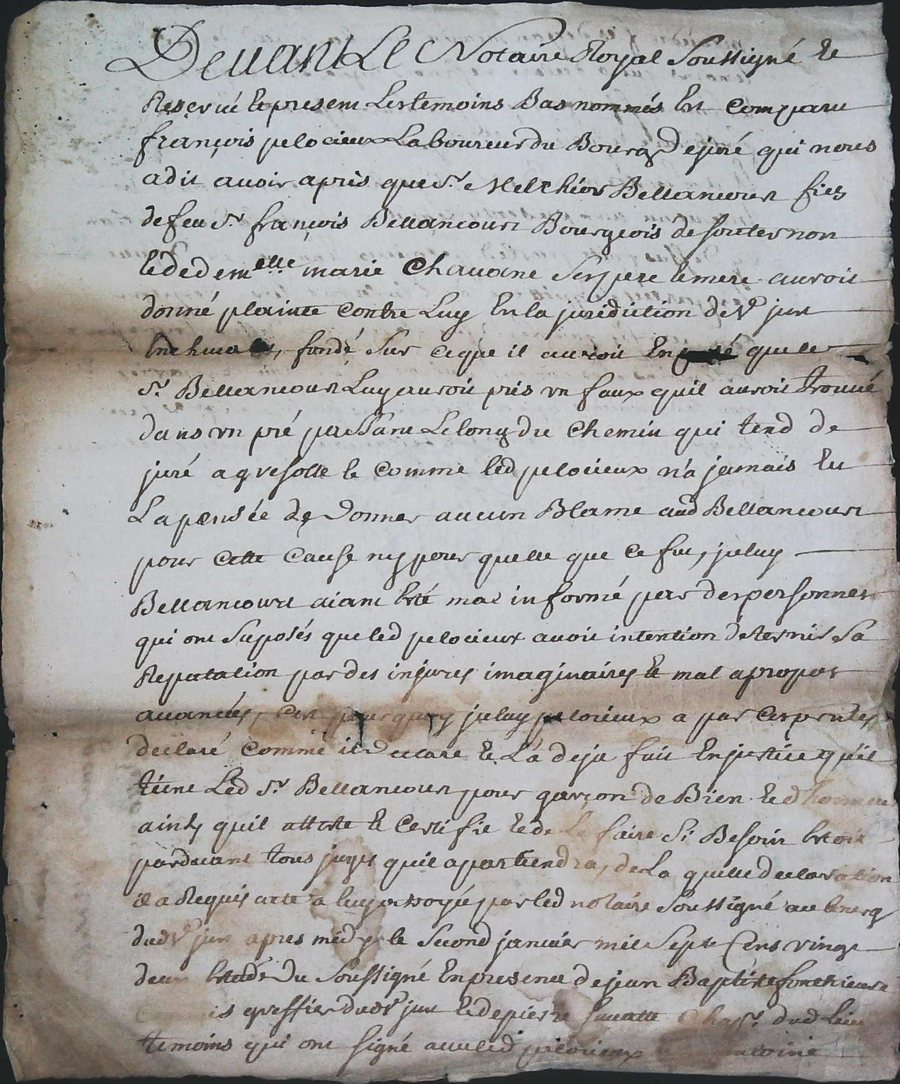 Devant Le Notaire Royal Soussigné et
Reservé et present Les temoins Bas nommés Est Comparu
françois pelocieux Laboureur du Bourg de juré qui nous
a dit avoir apris que Sr. Melchior Bellancourt fies
de feu Sr. françois Bellancourt Bourgeois de souternon
et de demelle marie Chavane Ses pere et mere auroit
donné plainte Contre Luy En la juridiction de St just
, fondé Sur ce que il auroit que le
Sr. Bellancourt Luy auroit pris vn faux quil auroit trouvé
dans vn pré passant Le long du Chemin qui tend de
juré a gresolle et Comme led pelocieux n'a jamais Eu
La pensée de donner aucun Blame aud Bellancourt
pour Cette Cause ny pour quelle que Ce fut, iceluy
Bellancourt aiant Eté mal informé par des personnes
qui ont Suposés que led pelocieux avoit intention de ternir Sa
Reputation par des injures imaginaires et mal apropos
avancées, C'est pourquoy iceluy pelocieux a par Ces presentes
declaré Comme il declare et L'a deja fait En justice quil
tient Led Sr. Bellancourt pour garçon de Bien et dhonneur
ainsy quil atteste et Certifie et de Le faire Si Besoin Estoit
pardevant tous juges quil apartiendra, de La quelle declaration
il a Requis acte a luy octroyé par led notaire Soussigné au bourg
dud St just apres midy le Second janvier mil Sept Cens vingt
deux Etude du Soussigné En presence de jean Baptiste
greffier dud St just et de pierre dud Lieu
temoins qui ont signé avec led pelocieux